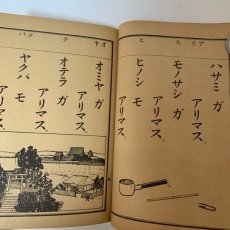 ヒ モ リア
ハサミ ガ
アリマス、
モノサシ ガ
アリマス、
ヒノシ モ
アリマス、
クバ テ オヤ
オミヤ ガ
アリマス、
オテラ ガ
アリマス、
ヤクバ モ
アリマス、